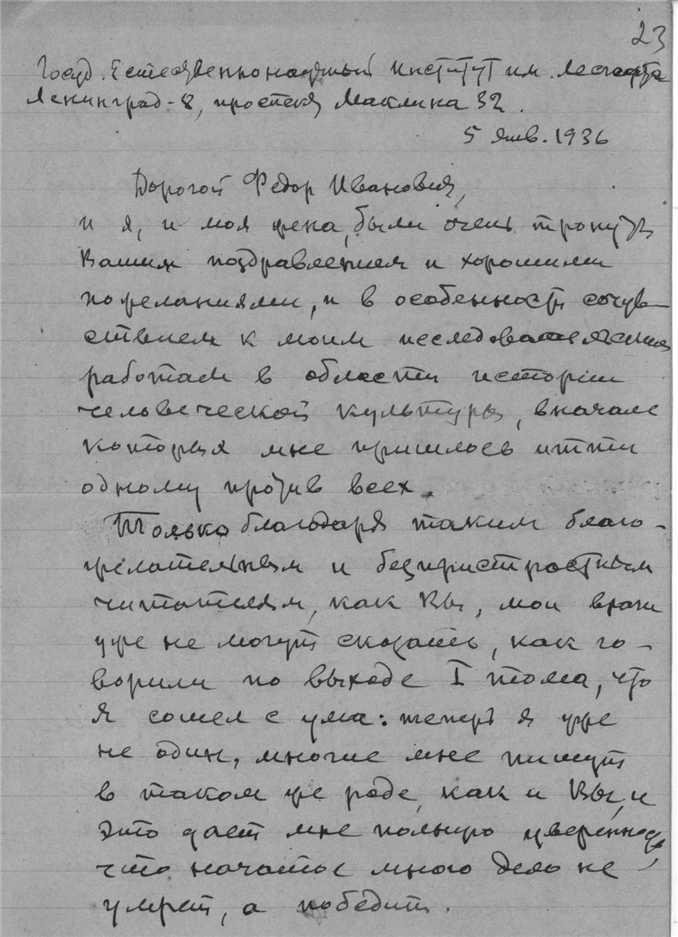 23
Госуд. Естественнонаучный институт им. Лесгафта
Ленинград-8, проспект Маклина 32.
5 янв. 1936
Дорогой Федор Иванович,
и я, и моя жена, были очень тронуты
Вашим поздравлением и хорошими
пожеланиями, и в особенности сочув-
ствием к моим исследовательским
работам в области истории
человеческой культуры, вначале
которых мне пришлось итти
одному против всех.
Только благодаря таким благо-
желательным и беспристрастным
читателям, как Вы, мои враги
уже не могут сказать, как го-
ворили по выходе I тома, что
я сошел с ума: теперь я уже
не один, многие мне пишут
в таком же роде, как и Вы, и
это дает мне полную уверенность,
что начатое мною дело не
умрет, а победит.